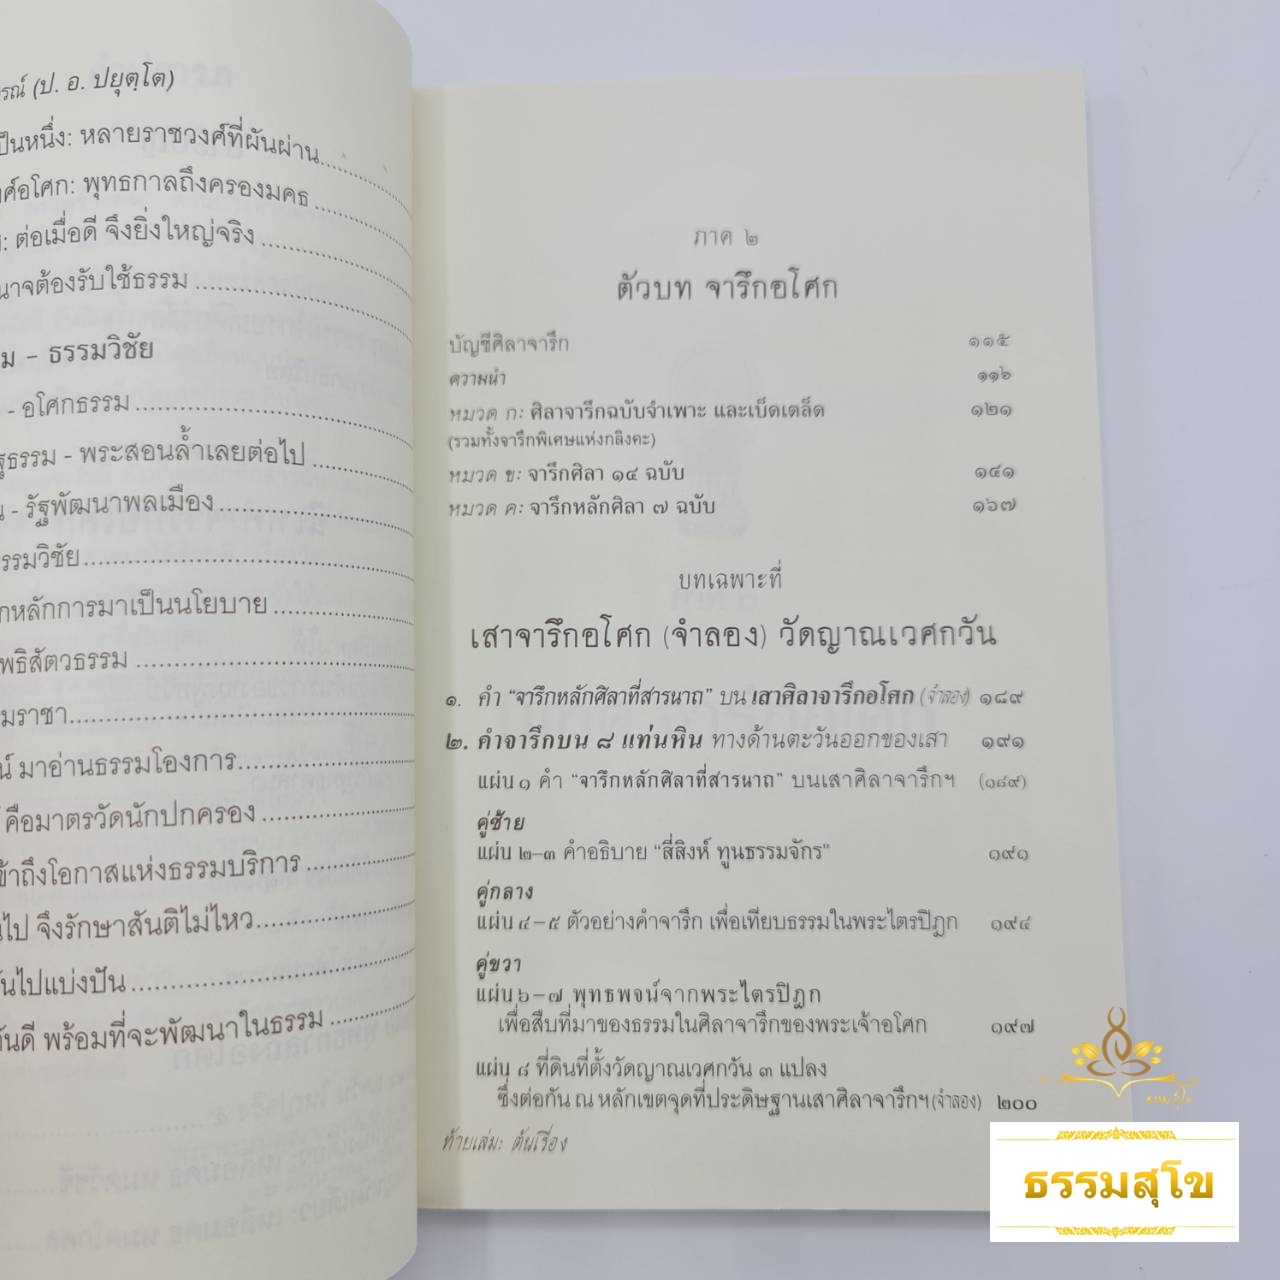 (ป. อ. ปยุตฺโต)
เป็นหนึ่ง: หลายราชวงศ์ที่ผันผ่าน
ศ์อโศก: พุทธกาลถึงครองมคธ
ต่อเมื่อดี จึงยิ่งใหญ่จริง
นาจต้องรับใช้ธรรม
ม – ธรรมวิชัย
- อโศกธรรม
ฐธรรม - พระสอนล้ำเลยต่อไป
น - รัฐพัฒนาพลเมือง
ธรรมวิชัย
กหลักการมาเป็นนโยบาย
พธิสัตวธรรม
มราชา
น์ มาอ่านธรรมโองการ
คือมาตรวัดนักปกครอง
ข้าถึงโอกาสแห่งธรรมบริการ
นไป จึงรักษาสันติไม่ไหว
ันไปแบ่งปัน
ันดี พร้อมที่จะพัฒนาในธรรม
ภาค ๒
ตัวบท จารึกอโศก
บัญชีศิลาจารึก ๑๑๕
ความนำ ๑๑๖
หมวด ก: ศิลาจารึกฉบับจำเพาะ และเบ็ดเตล็ด ๑๒๑
(รวมทั้งจารึกพิเศษแห่งกลิงคะ)
หมวด ข: จารึกศิลา ๑๔ ฉบับ ๑๔๑
หมวด ค: จารึกหลักศิลา ๗ ฉบับ ๑๖๗
บทเฉพาะที่
เสาจารึกอโศก (จำลอง) วัดญาณเวศกวัน
๑. คำ “จารึกหลักศิลาที่สารนาถ” บน เสาศิลาจารึกอโศก (จำลอง) ๑๘๙
๒. คำจารึกบน ๘ แท่นหิน ทางด้านตะวันออกของเสา ๑๙๑
แผ่น ๑ คำ “จารึกหลักศิลาที่สารนาถ” บนเสาศิลาจารึกฯ (๑๘๙)
คู่ซ้าย
แผ่น ๒–๓ คำอธิบาย “สี่สิงห์ ทูนธรรมจักร” ๑๙๑
คู่กลาง
แผ่น ๔–๕ ตัวอย่างคำจารึก เพื่อเทียบธรรมในพระไตรปิฎก ๑๙๔
คู่ขวา
แผ่น ๖–๗ พุทธพจน์จากพระไตรปิฎก
เพื่อสืบที่มาของธรรมในศิลาจารึกของพระเจ้าอโศก ๑๙๗
แผ่น ๘ ที่ดินที่ตั้งวัดญาณเวศกวัน ๓ แปลง
ซึ่งต่อกัน ณ หลักเขตจุดที่ประดิษฐานเสาศิลาจารึกฯ (จำลอง) ๒๐๐
ท้ายเล่ม: ต้นเรื่อง
ธรรมสุโข
ธรรมสุโข